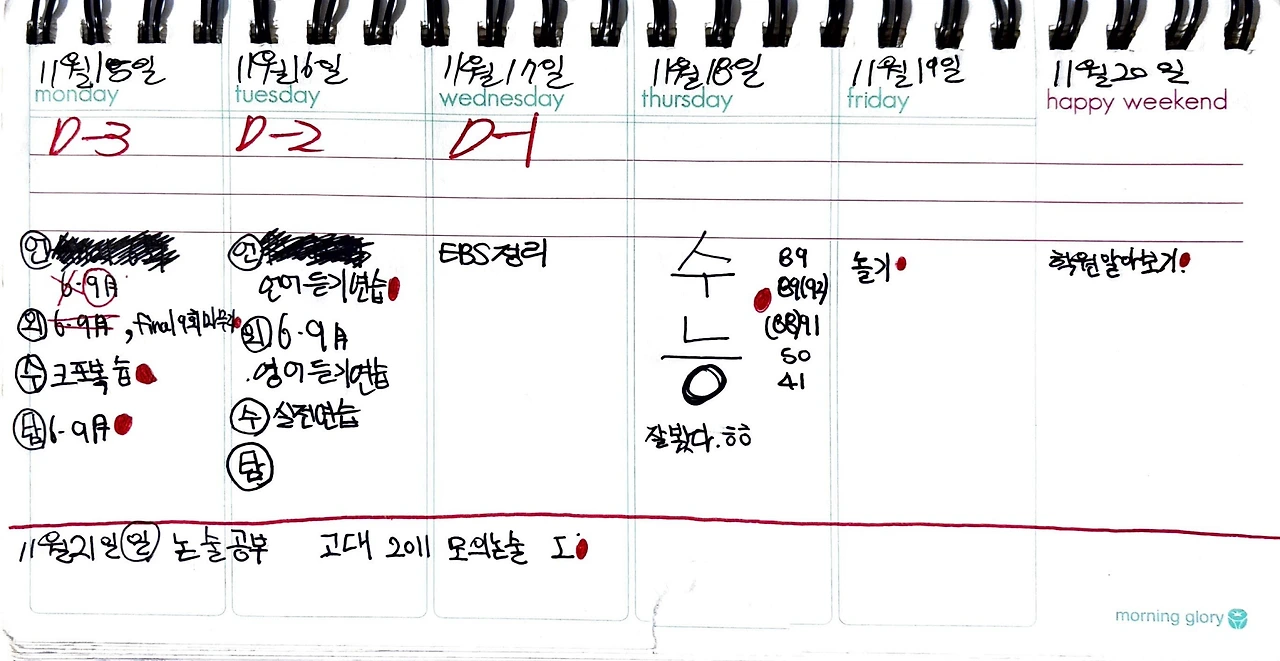 11월15일
monday
D-3
언
6·9月
외 6·9月, final 9회 마무리
수 크포복습
탐 6·9月
11월16일
tuesday
D-2
언
언어듣기연습
외 6·9月
·영어듣기연습
수 실전연습
탐
11월17일
wednesday
D-1
EBS정리
11월18일
thursday
수능
89
89(92)
(88)91
50
41
잘봤다.ㅎㅎ
11월19일
friday
놀기
11월20일
happy weekend
학원알아보기!
11월21일(일) 논술공부 고대 2011 모의논술
morning glory